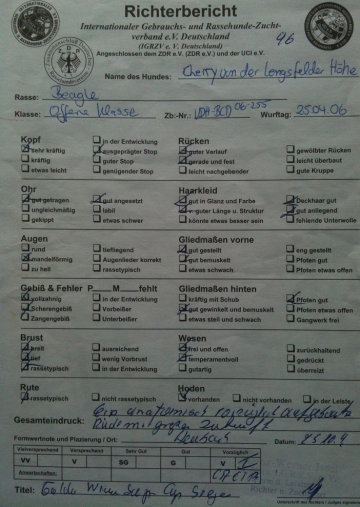 Richterbericht
Internationaler Gebrauchs- und Rassehunde-Zucht-
verband e.V. Deutschland
(IGRZV e. V. Deutschland)
Angeschlossen dem ZDR e.V. (ZDR e.V.) und der UCI e.V.
96
Name des Hundes: Cherry von der Longsfelder Höhe
Rasse: Beagle
Klasse: Offene Klasse Zb.-Nr.: 06-255 Wurftag: 25.04.06
Kopf Rücken
sehr kräftig in der Entwicklung guter Verlauf gewölbter Rücken
kräftig ausgeprägter Stop gerade und fest leicht überbaut
etwas leicht guter Stop leicht nachgebender gute Kruppe
genügender Stop
Ohr Haarkleid
gut getragen gut angesetzt gut in Glanz und Farbe Deckhaar gut
ungleichmäßig labil guter Länge u. Struktur gut anliegend
gekippt etwas schwer könnte etwas besser sein fehlende Unterwolle
Augen Gliedmaßen vorne
rund tiefliegend gut gestellt eng gestellt
mandelförmig Augenlieder korrekt gut bemuskelt Pfoten gut
zu hell rassetypisch etwas schwach Pfoten etwas offen
Gebiß & Fehler P M fehlt Gliedmaßen hinten
vollzahnig in der Entwicklung kräftig mit Schub Pfoten gut
Scherengebiß Vorbeißer gut gewinkelt und bemuskelt Pfoten etwas offen
Zangengebiß Unterbeißer etwas steil und schwach Gangwerk frei
Brust Wesen
breit ausreichend frei und offen zurückhaltend
tief wenig Vorbrust temperamentvoll gedrückt
rassetypisch in der Entwicklung gutartig überreizt
Rute Hoden
rassetypisch nicht rassetypisch vorhanden nicht vorhanden in der Leiste
Ein anatomisch
Gesamteindruck: Rüde mit großer Zukunft
Formwertnote und Plazierung / Ort: Datum:
Vielversprechend Versprechend Sehr Gut Gut Vorzüglich
VV V SG G V I
Anwartschaften:
Titel: Cup Sieger